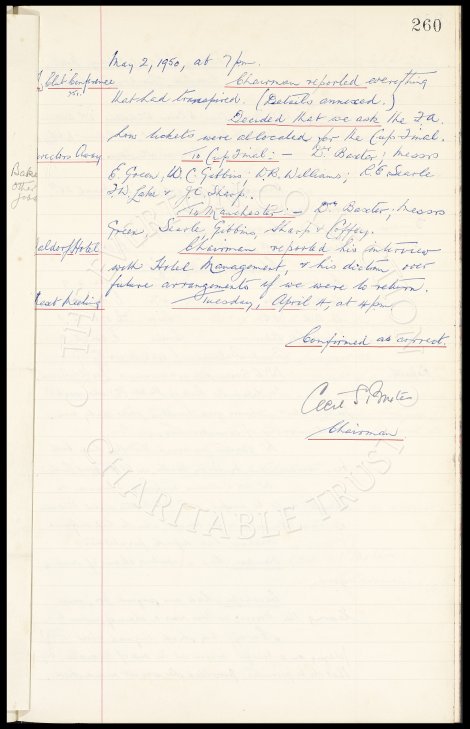 260
May 2, 1950, at 7 pm.
Conference Chairman reported everything
that had transpired. (Details annexed.)
Decided that we ask the F.A.
how tickets were allocated for the Cup Final.
Directors Away To Cup Final: – Dr. Baxter, Messrs
E. Green, W.C. Gibbins, N.R. Williams, R.E. Searle
T.W. & J.C. Sharp.
To Manchester: – Dr. Baxter, Messrs
Green, Searle Gibbins, Sharp & Coffey.
aldorf Hotel Chairman reported his interview
with Hotel Management, & his dictum, over
future arrangements if we were to return.
Next Meeting Tuesday, April 4, at 4 pm
Confirmed as correct.
Cecil S Baxter
Chairman
Bake
other
jobs
CHARITABLE TRUST